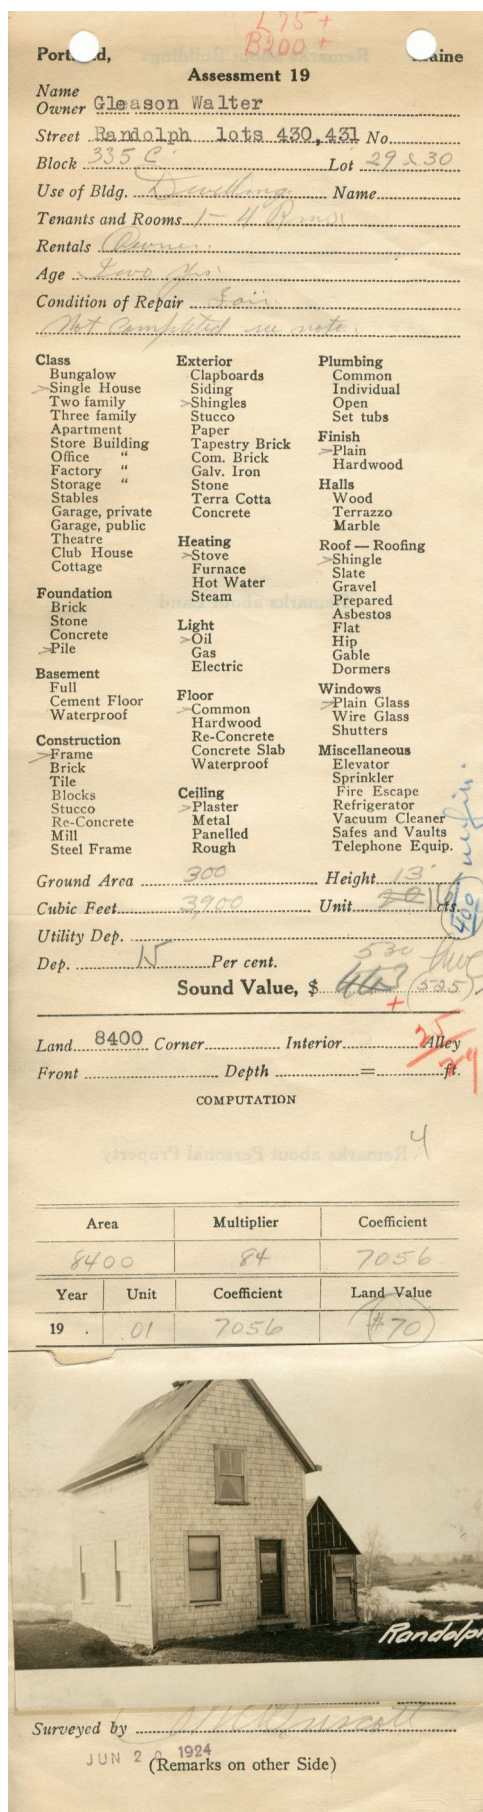 L 75 +
B 200 +
Portland, Maine
Assessment 19
Name
Owner Gleason Walter
Street Randolph lots 430,431 No.
Block 335 C Lot 29 & 30
Use of Bldg. Dwelling Name
Tenants and Rooms 1 - 4 Rms.
Rentals Owner.
Age Two yrs.
Condition of Repair Fair
Not completed see note.
Class
Bungalow
>Single House
Two family
Three family
Apartment
Store Building
Office "
Factory "
Storage "
Stables
Garage, private
Garage, public
Theatre
Club House
Cottage
Foundation
Brick
Stone
Concrete
>Pile
Basement
Full
Cement Floor
Waterproof
Construction
>Frame
Brick
Tile
Blocks
Stucco
Re-Concrete
Mill
Steel Frame
Exterior
Clapboards
Siding
>Shingles
Stucco
Paper
Tapestry Brick
Com. Brick
Galv. Iron
Stone
Terra Cotta
Concrete
Heating
>Stove
Furnace
Hot Water
Steam
Light
>Oil
Gas
Electric
Floor
>Common
Hardwood
Re-Concrete
Concrete Slab
Waterproof
Ceiling
>Plaster
Metal
Panelled
Rough
Plumbing
Common
Individual
Open
Set tubs
Finish
>Plain
Hardwood
Halls
Wood
Terrazzo
Marble
Roof — Roofing
>Shingle
Slate
Gravel
Prepared
Asbestos
Flat
Hip
Gable
Dormers
Windows
>Plain Glass
Wire Glass
Shutters
Miscellaneous
Elevator
Sprinkler
Fire Escape
Refrigerator
Vacuum Cleaner
Safes and Vaults
Telephone Equip.
Ground Area 300 Height 13'
Cubic Feet 3,900 Unit 16 cts.
400
Utility Dep.
Dep. 15 Per cent.
530
Sound Value, $ 463 (525)
+
Land 8400 Corner Interior Alley
25/24
Front Depth = ft.
COMPUTATION
4
Area Multiplier Coefficient
8400 84 7056
Year Unit Coefficient Land Value
19 . .01 7056 $70
Randolph
Surveyed by
JUN 2 1924
(Remarks on other Side)